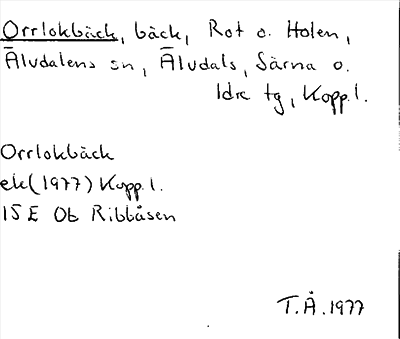 Orrlokbäck, bäck, Rot o. Holen,
Älvdalens sn, Älvdals, Särna o.
Idre tg, Kopp. l.
Orrlokbäck
ek (1977) Kopp. l.
15 E 0b Ribbåsen
T.Å. 1977